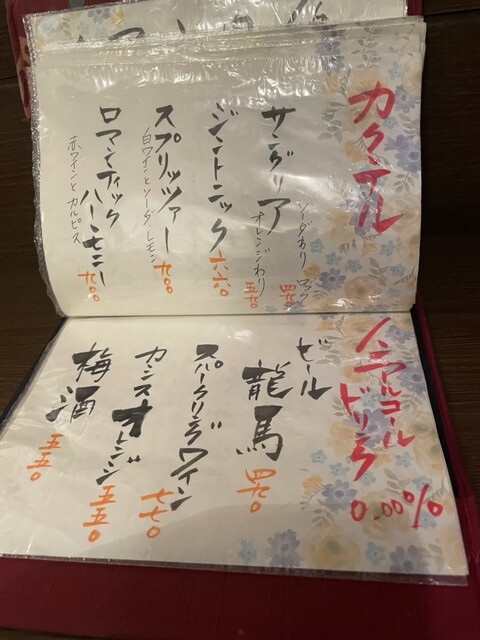 カクテル
サングリア
ソーダわり ロック 四九〇
オレンジわり 五五〇
ジントニック 六六〇
スプリッツァー
白ワインとソーダ、レモン 九〇〇
ロマンティック
ハーモニー
赤ワインとカルピス 九〇〇
ノンアルコール
ドリンク
0.00%
ビール
龍馬 四九〇
スパークリングワイン 七七〇
カシスオレンジ 五五〇
梅酒 五五〇